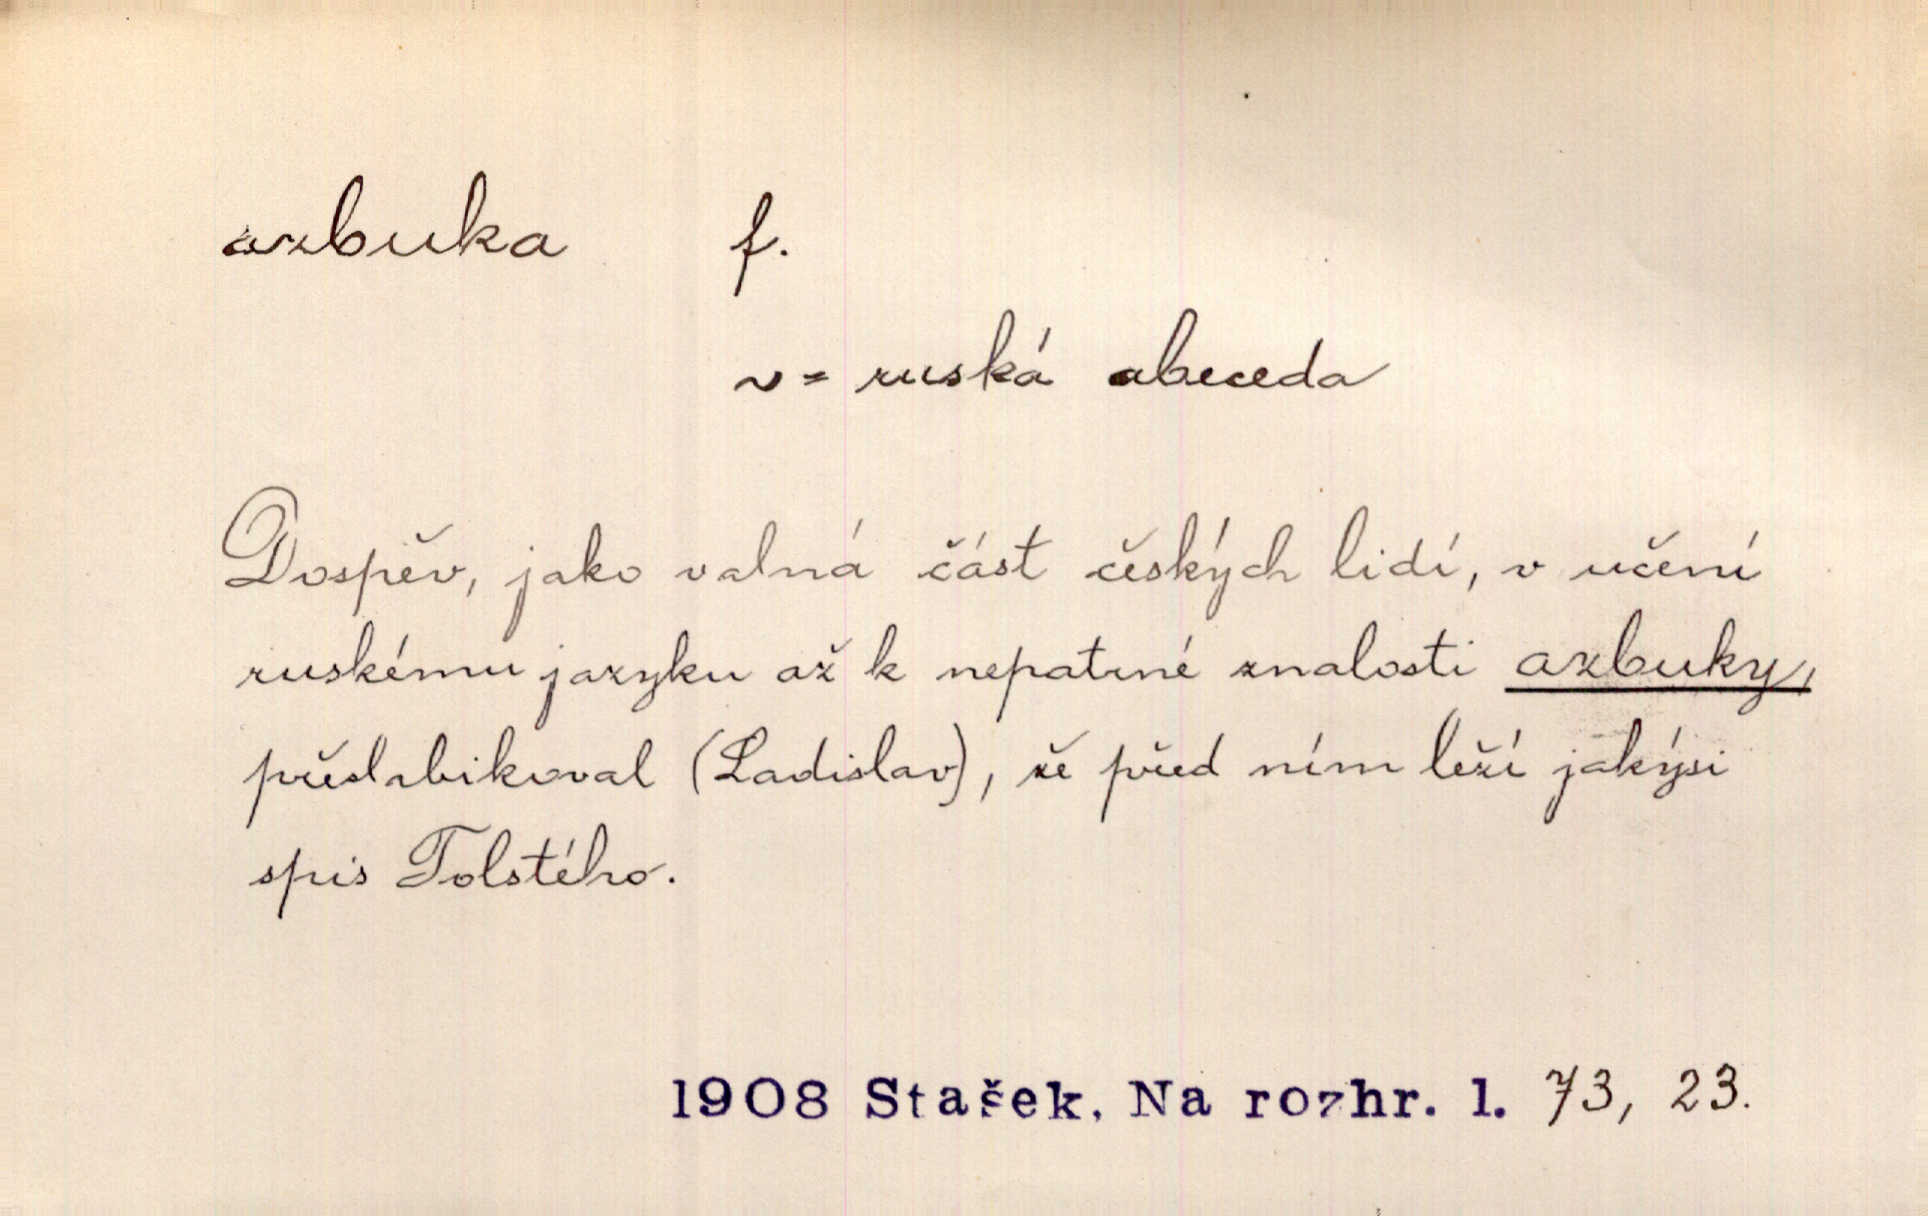 azbuka f.
v = ruská abeceda
Dospěv, jako valná část českých lidí, v učení
ruskému jazyku až k nepatrné znalosti azbuky,
přeslabikoval (Ladislav), že před ním leží jakýsi
spis Tolstého.
1908 Stašek, Na rozhr. 1. 73, 23.